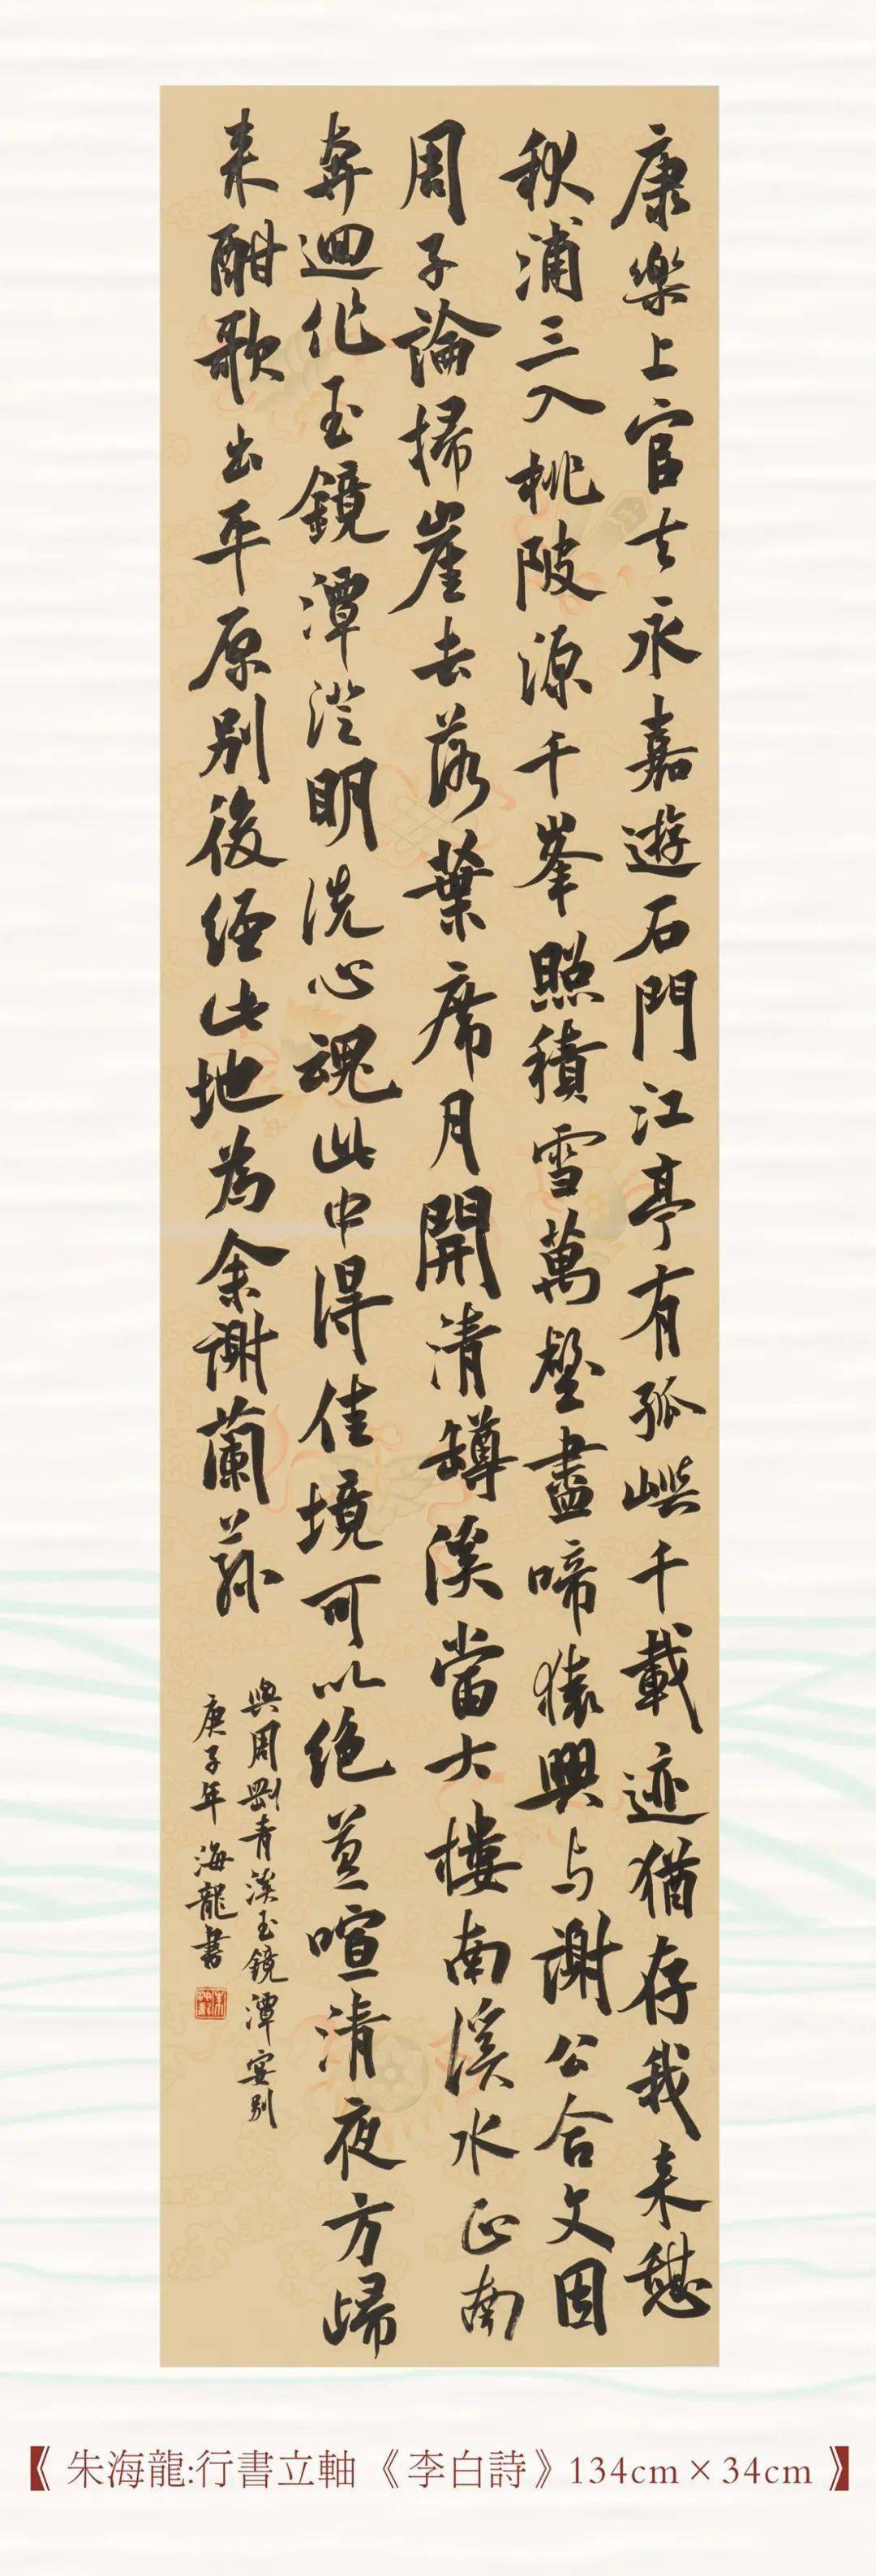 康樂上官去永嘉遊石門江亭有孤嶼千載迹猶存我来憇
秋浦三入桃陂源千峯照積雪萬壑盡啼猿興与謝公合文因
周子論掃崖去落葉席月開清罇溪當大樓南溪水正南
奔迴作玉鏡潭澄明洗心魂此中得佳境可以绝囂喧清夜方歸
来酣歌出平原别後經此地為余謝蘭蓀
與周剛青溪玉鏡潭宴别
庚子年海龍書
【《 朱海龍:行書立軸《李白詩》134cm×34cm 》】